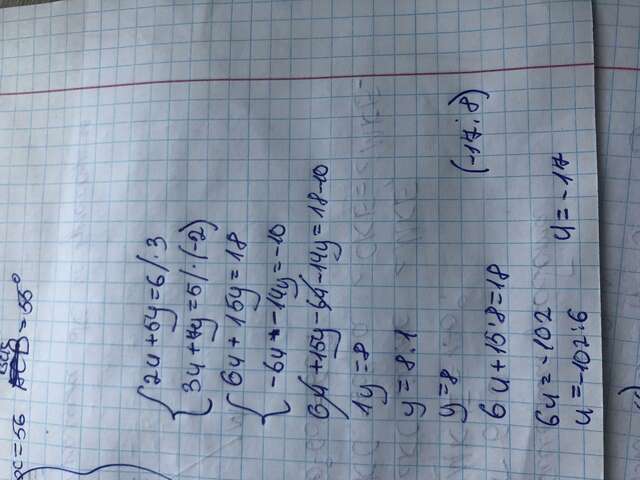 {2u+5y=6/·3
3u+7y=5/·(-2)
{6u+15y=18
-6u-14y=-10
6u+15y-6u-14y=18-10
1y=8
y=8:1
y=8
6u+15·8=18
(-17;8)
6u=-102
u=-102:6
u=-17